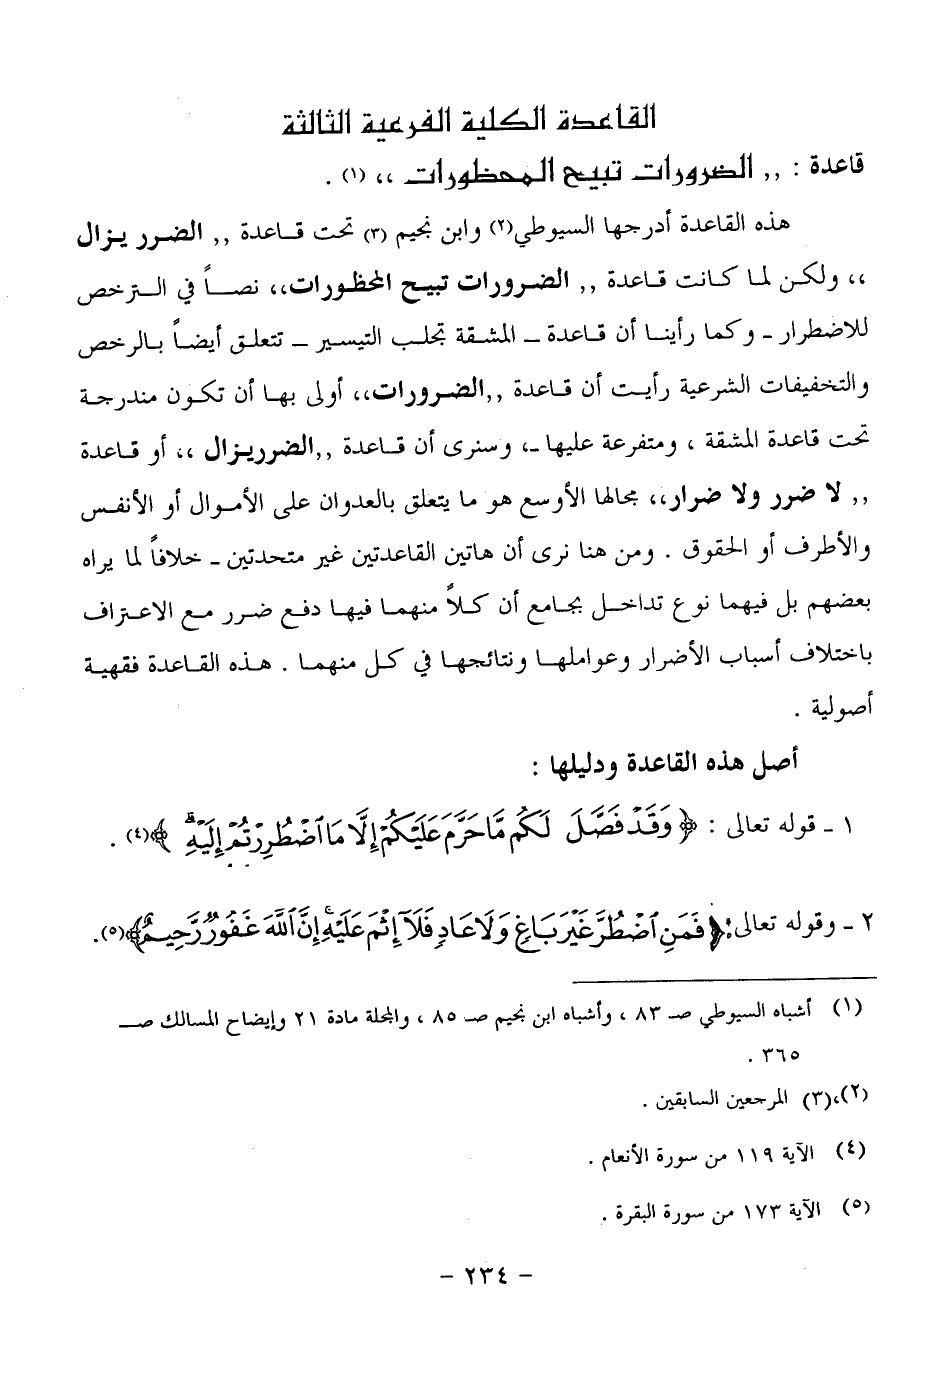 القاعدة الكلية الفرعية الثالثة
قاعدة : ,, الضرورات تبيح المحظورات ،، (١) .
هذه القاعدة أدرجها السيوطي(٢) وابن نجيم (٣) تحت قاعدة ,, الضرر يزال
،، ولكن لما كانت قاعدة ,, الضرورات تبيح المحظورات،، نصاً في الترخص
للاضطرار ـ وكما رأينا أن قاعدة ـ المشقة تجلب التيسير ـ تتعلق أيضاً بالرخص
والتخفيفات الشرعية رأيت أن قاعدة ,,الضرورات،، أولى بها أن تكون مندرجة
تحت قاعدة المشقة ، ومتفرعة عليها ـ، وسنرى أن قاعدة ,,الضرريزال ،، أو قاعدة
,, لا ضرر ولا ضرار،، مجالها الأوسع هو ما يتعلق بالعدوان على الأموال أو الأنفس
والأطرف أو الحقوق . ومن هنا نرى أن هاتين القاعدتين غير متحدتين ـ خلافاً لما يراه
بعضهم بل فيهما نوع تداخل بجامع أن كلاً منهما فيها دفع ضرر مع الاعتراف
باختلاف أسباب الأضرار وعواملها ونتائجها في كل منهما . هذه القاعدة فقهية
أصولية .
أصل هذه القاعدة ودليلها :
١ ـ قوله تعالى : ﴿ وَقَدْ فَصَّلَ لَكُم مَّا حَرَّمَ عَلَيْكُمْ إِلَّا مَا ٱضْطُرِرْتُمْ إِلَيْهِ ۗ ﴾(٤) .
٢ ـ وقوله تعالى:﴿ فَمَنِ ٱضْطُرَّ غَيْرَ بَاغٍ وَلَا عَادٍ فَلَآ إِثْمَ عَلَيْهِ ۚ إِنَّ ٱللَّهَ غَفُورٌ رَّحِيمٌ ﴾(٥).
(١) أشباه السيوطي صـ ٨٣ ، وأشباه ابن نجيم صـ ٨٥ ، والمجلة مادة ٢١ وإيضاح المسالك صـ
٣٦٥ .
(٢)،(٣) المرجعين السابقين .
(٤) الآية ١١٩ من سورة الأنعام .
(٥) الآية ١٧٣ من سورة البقرة .
- ٢٣٤ -